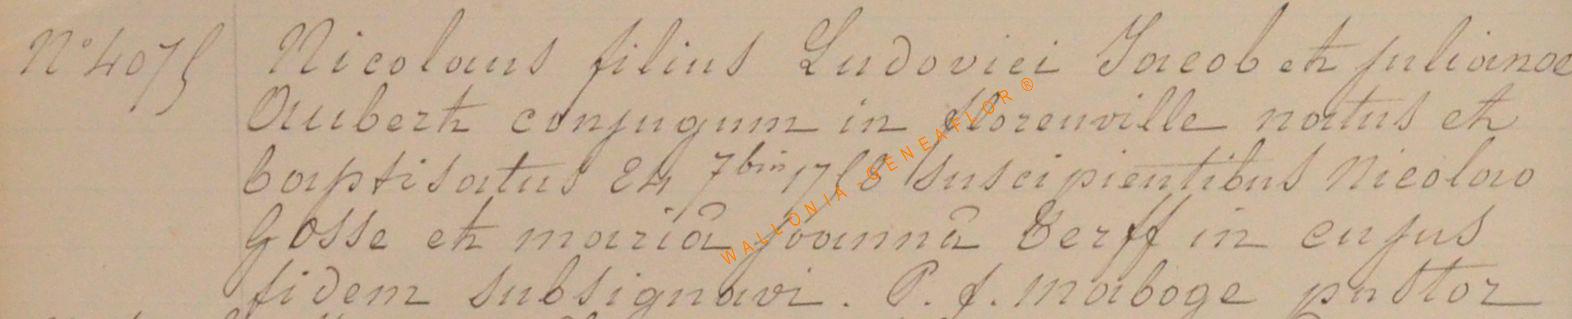 N° 4075 Nicolaus filius Ludovici Jacob et julianae
Aubert conjugum in florenville natus et
baptisatus 24 7bris suscipientibus Nicolao
Gosse et mariâ joannâ in cujus
fidem subsignavi. P. f. maboge pastor
WALLONIA-GENEAFLOR ®